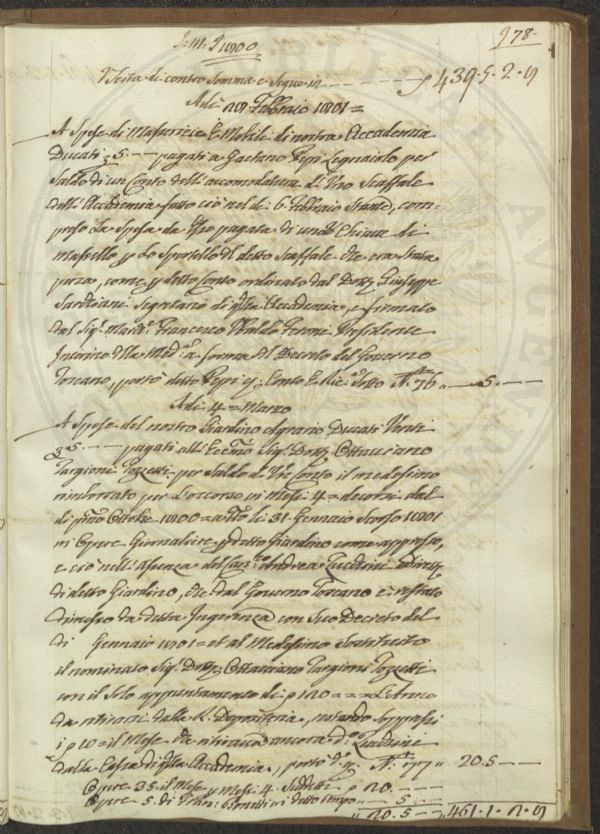 J. M. J. 1800
978.
Uscita di contro Somma e Segue in ------ p 439.5.2.9
Adi 28 Febbraio 1801 =
A Spese di Masserizie, e Mobili di nostra Accademia
Ducati 5.--- pagati a Gaetano Pepi Legnaiolo per
Saldo di un Conto dell'accomodatura d'Uno Scaffale
dell'Accademia fatto ciò nel dì 6. Febbraio Stante, com-
preso la Spesa da Esso pagata di una Chiave di
maschio p lo Sportello del detto Scaffale che era Stata
persa, come p detto Conto ordinato dal Dott. Giuseppe
Sarchiani Segretario di qta Accademia, e firmato
dal Sig. March. Francesco Ubaldo Feroni Presidente
Interino della Med.a a forma del Decreto del Governo
Toscano, portò detto Pepi p. Conto E Ric.a Sotto N. 76 " -- 5. ---
Adi 4 = Marzo
A Spese del nostro Giardino Agrario Ducati Venti
5.--- pagati all' Eccmo Sig. Dott. Ottaviano
Targioni Tozzetti per Saldo d'Un Conto il medesimo
rimborsato per l'occorso in Mesi 4 = decorsi dal
di pmo Ottobre 1800 = a tto li 31. Gennaio Scorso 1801
in Opere Giornaliere p detto Giardino come appresso,
e ciò nell'Assenza del Can.co Andrea Zucchini
di detto Giardino, che dal Governo Toscano è restato
dimesso da detta Ingerenza con Suo Decreto del
di Gennaio 1801 = et al Medesimo Sostituito
il nominato Sig. Dott. Ottaviano Targioni Tozzetti
con il Solo appuntamento di p 120 = = = L'Anno
da ritirarsi dalla R. Depositeria, restando Soppressi
i p 10 = il Mese che ritirava ancora d.o Zucchini
dalla Cassa di qta Accademia, portò d.o N. 77 " 20.5 ---
Opere 35. il Mese p Mesi 4. Suddetti p 20. ---
Opere 5. di detto tempo " -- 5. ---
" 20.5 -- 461.1.2.9